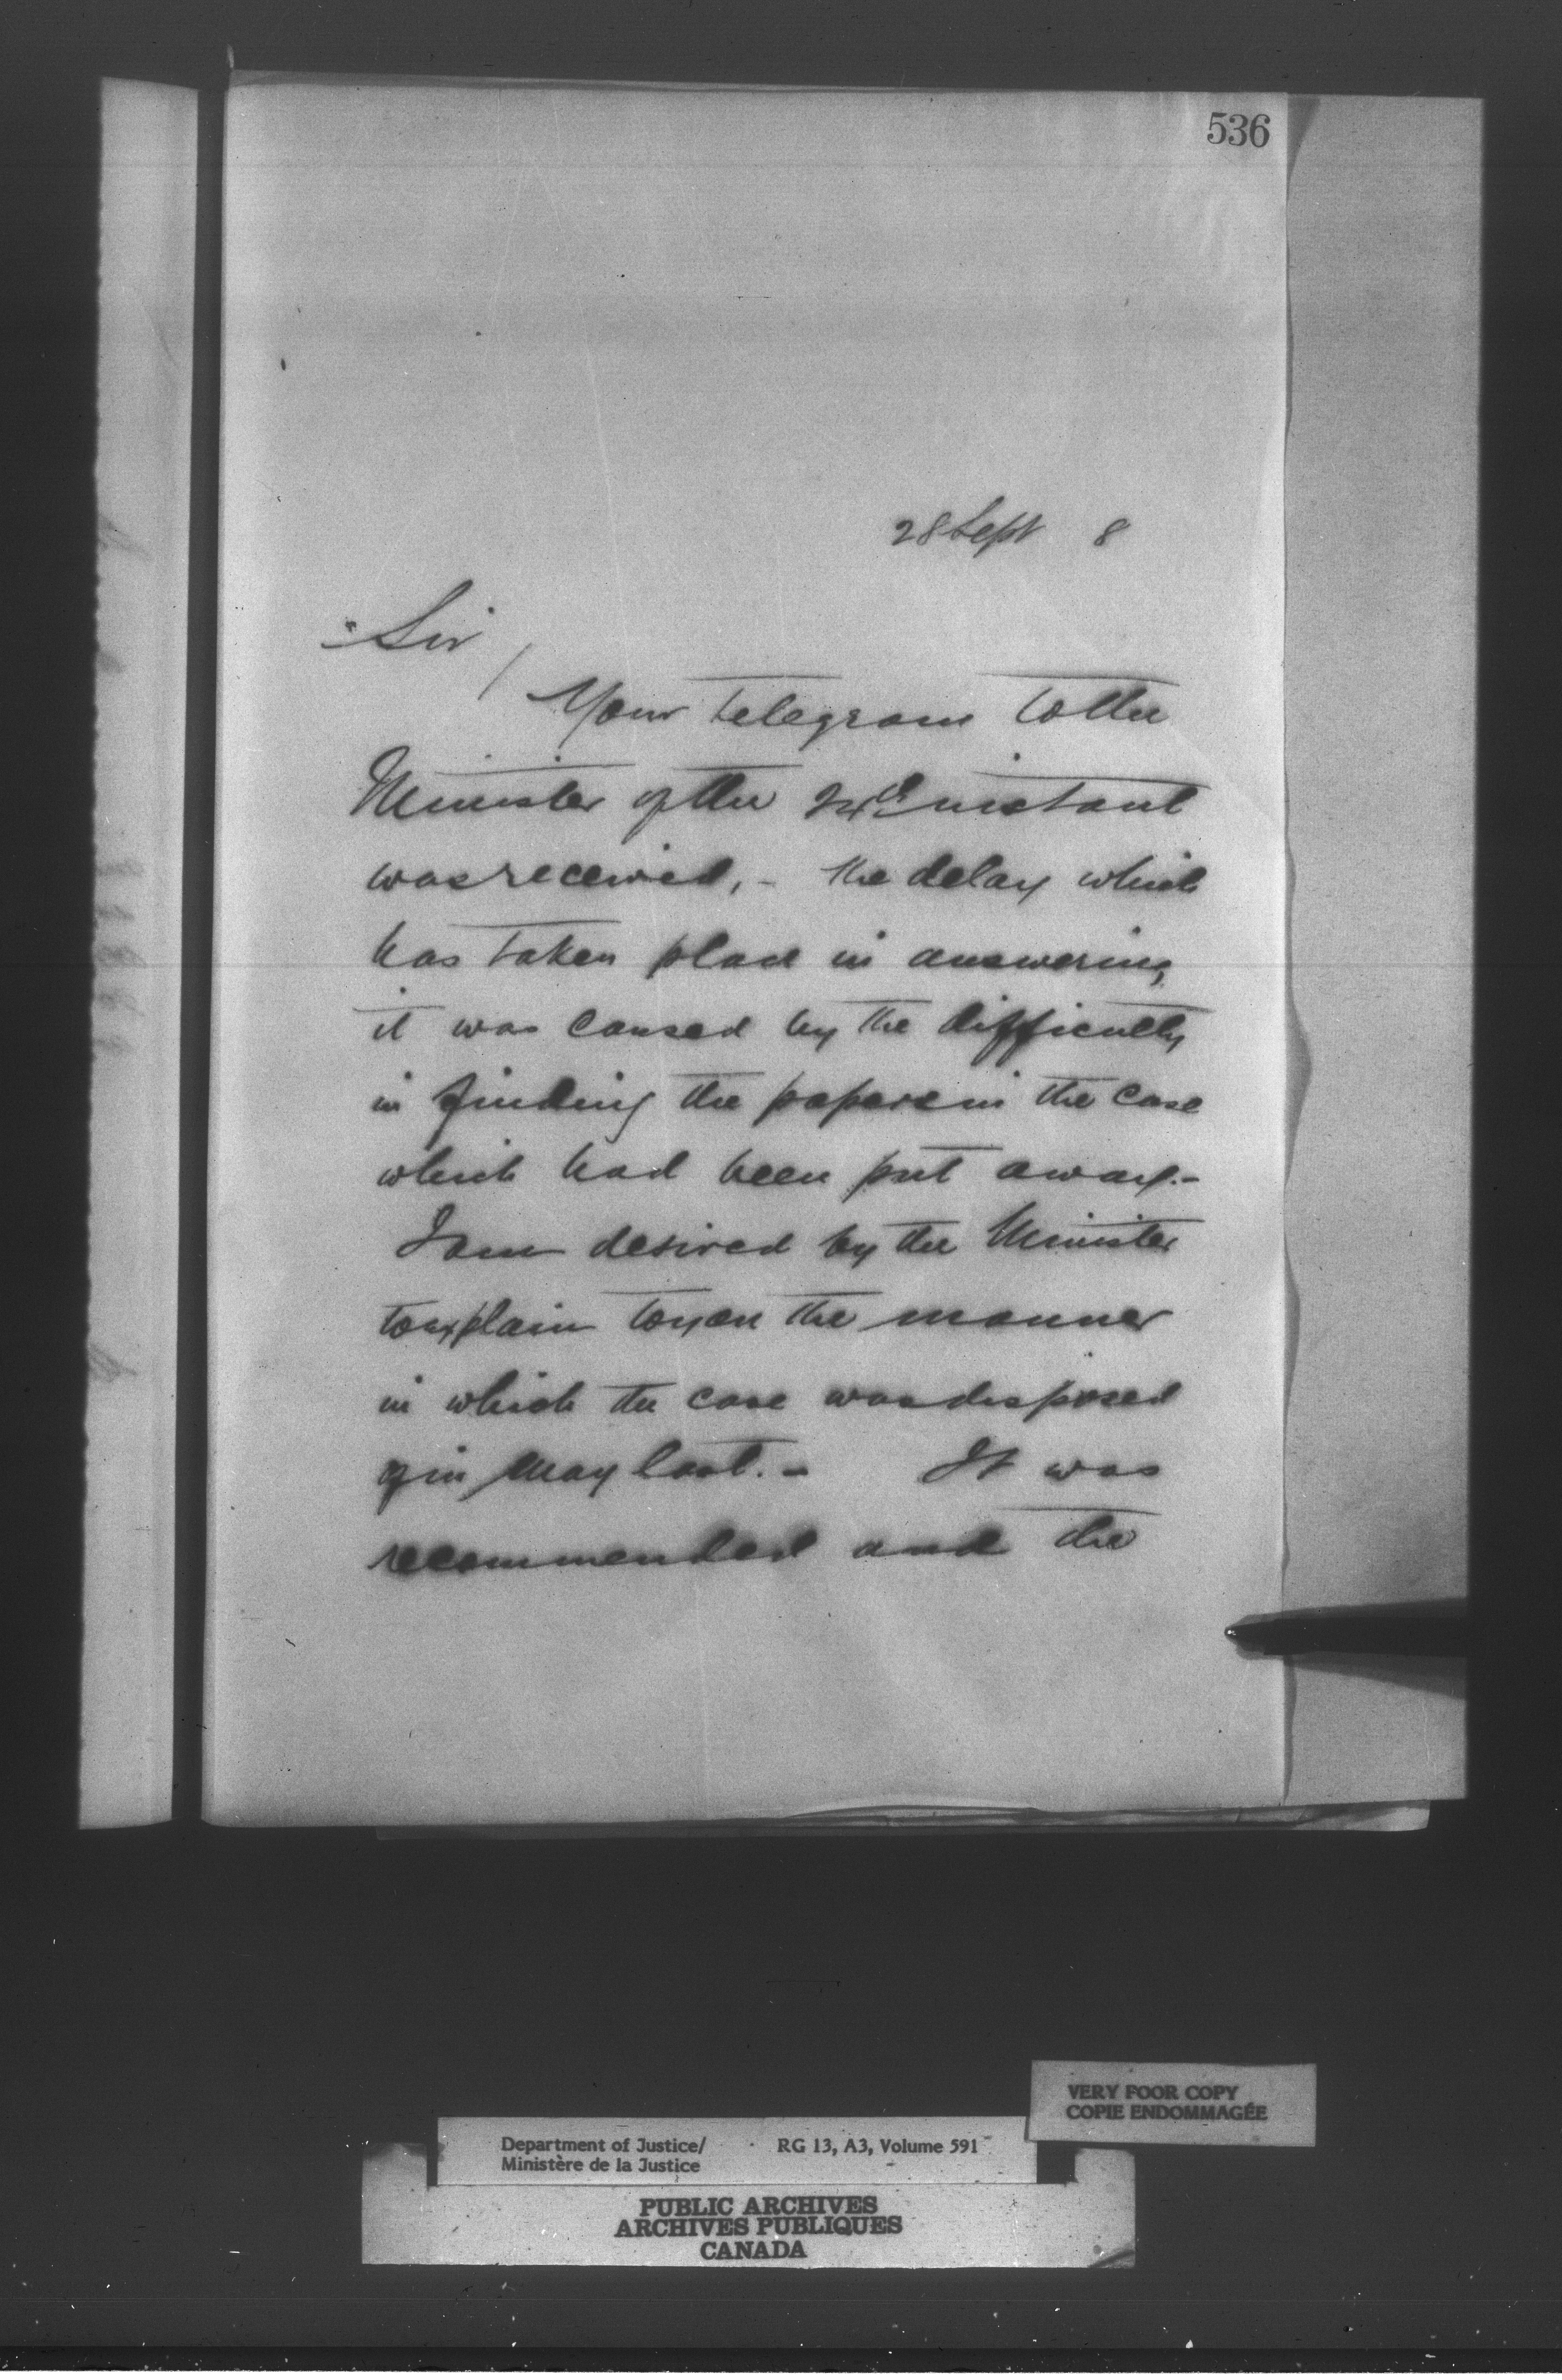 536
28 Sept 8
Sir
Your telegram to the
Minister of the instant
was received, - the delay which
has taken place in answering
it was caused by the difficulty
in finding the papers in the case
which had been put away.-
I am desired by the Minister
to explain to you the manner
in which the case was disposed
of in May last. - It was
recommended and the
VERY POOR COPY
COPIE ENDOMMAGÉE
Department of Justice/ RG 13, A3, Volume 591
Ministère de la Justice
PUBLIC ARCHIVES
ARCHIVES PUBLIQUES
CANADA